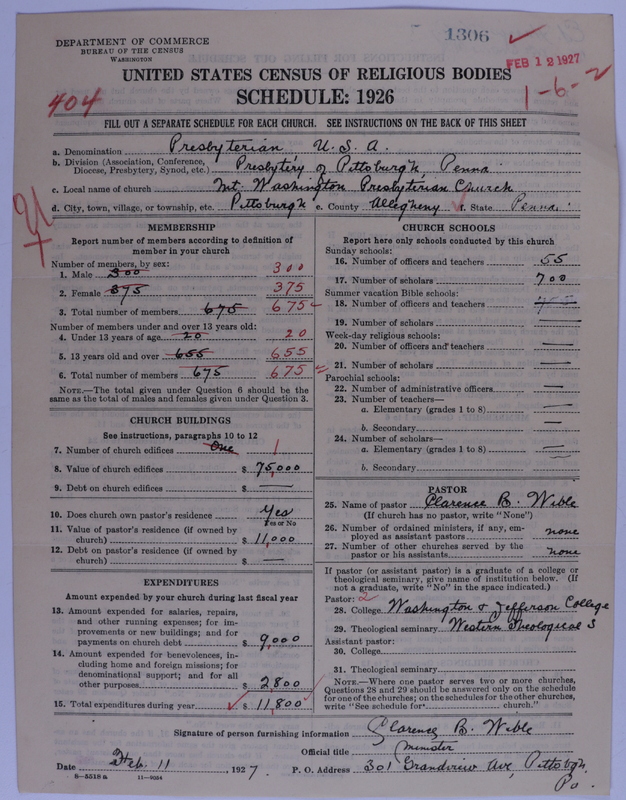 1306
DEPARTMENT OF COMMERCE
BUREAU OF THE CENSUS
WASHINGTON
FEB 12 1927
UNITED STATES CENSUS OF RELIGIOUS BODIES
404
SCHEDULE: 1926
1-6-2
FILL OUT A SEPARATE SCHEDULE FOR EACH CHURCH. SEE INSTRUCTIONS ON THE BACK OF THIS SHEET
a. Denomination Presbyterian U. S. A.
b. Division (Association, Conference, Diocese, Presbytery, Synod, etc.) Presbytery of Pittsburgh, Penna
c. Local name of church Mt. Washington Presbyterian Church
d. City, town, village, or township, etc. Pittsburgh e. County Allegheny f. State Penna.
MEMBERSHIP
Report number of members according to definition of
member in your church
Number of members, by sex:
1. Male 300 300
2. Female 375 375
3. Total number of members 675 675
Number of members under and over 13 years old:
4. Under 13 years of age 20 20
5. 13 years old and over 655 655
6. Total number of members 675 675
NOTE.—The total given under Question 6 should be the
same as the total of males and females given under Question 3.
CHURCH BUILDINGS
See instructions, paragraphs 10 to 12
7. Number of church edifices One 1
8. Value of church edifices $ 75,000
9. Debt on church edifices $ —
10. Does church own pastor's residence Yes
Yes or No
11. Value of pastor's residence (if owned by
church) $ 11,000
12. Debt on pastor's residence (if owned by
church) $ —
EXPENDITURES
Amount expended by your church during last fiscal year
13. Amount expended for salaries, repairs,
and other running expenses; for im-
provements or new buildings; and for
payments on church debt $ 9,000
14. Amount expended for benevolences, in-
cluding home and foreign missions; for
denominational support; and for all
other purposes $ 2,800
15. Total expenditures during year $ 11,800
CHURCH SCHOOLS
Report here only schools conducted by this church
Sunday schools:
16. Number of officers and teachers 55
17. Number of scholars 700
Summer vacation Bible schools:
18. Number of officers and teachers
19. Number of scholars —
Week-day religious schools:
20. Number of officers and teachers —
21. Number of scholars —
Parochial schools:
22. Number of administrative officers —
23. Number of teachers—
a. Elementary (grades 1 to 8) —
b. Secondary —
24. Number of scholars—
a. Elementary (grades 1 to 8) —
b. Secondary
PASTOR
25. Name of pastor Clarence B. Wible
(If church has no pastor, write "None")
26. Number of ordained ministers, if any, em-
ployed as assistant pastors none
27. Number of other churches served by the
pastor or his assistants none
If pastor (or assistant pastor) is a graduate of a college or
theological seminary, give name of institution below. (If
not a graduate, write "No" in the space indicated.)
Pastor: 2
28. College Washington & Jefferson College
29. Theological seminary Western Theological S
Assistant pastor:
30. College
31. Theological seminary
NOTE.—Where one pastor serves two or more churches,
Questions 28 and 29 should be answered only on the schedule
for one of the churches; on the schedules for the other churches,
write "See schedule for church."
Signature of person furnishing information Clarence B. Wible
Official title Minister
Date Feb. 11, 1927. P. O. Address 301 Grandview Ave, Pittsbgh,
Pa.
8-5518a 11-9054